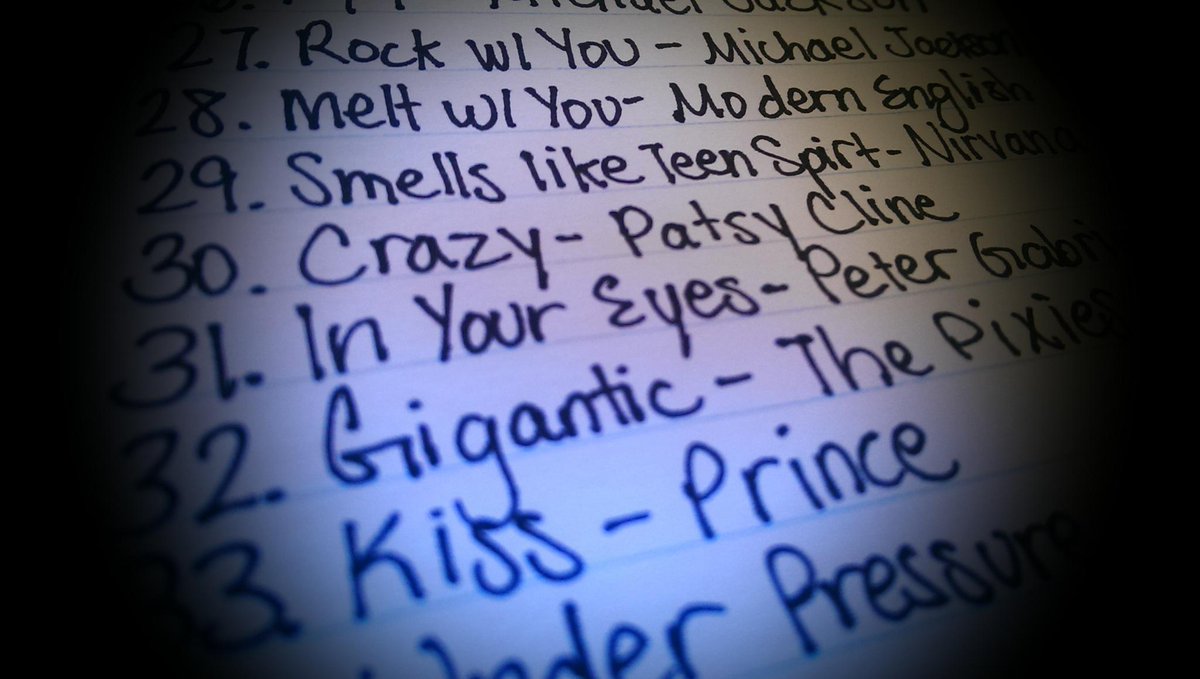 Michael Jackson
27. Rock w/ You - Michael Jackson
28. Melt w/ You - Modern English
29. Smells like Teen Spirt - Nirvana
30. Crazy - Patsy Cline
31. In Your Eyes - Peter Gabri
32. Gigantic - The Pixies
33. Kiss - Prince
Under Pressure